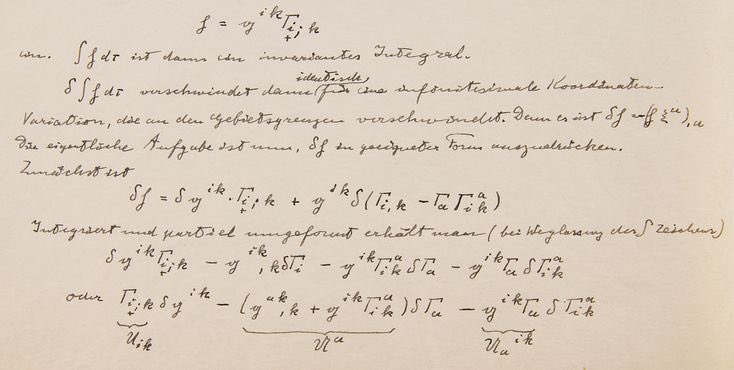 f = 𝔤^{ik} Γ_{i;k}
an. ∫f dτ ist dann ein invariantes Integral.
δ∫f dτ verschwindet dann identisch für eine infinitesimale Koordinaten-
Variation, die an den Gebietsgrenzen verschwindet. Denn es ist δf = (f ξ^a)_{,a}
Die eigentliche Aufgabe ist nun, δf in geeigneter Form auszudrücken.
Zunächst ist
δf = δ𝔤^{ik}·Γ_{i;k} + 𝔤^{ik} δ(Γ_{i,k} − Γ_a Γ_{ik}^a)
Integriert und partiell umgeformt erhält man (bei Weglassung des ∫ Zeichens)
δ𝔤^{ik} Γ_{i;k} − 𝔤^{ik}_{,k} δΓ_i − 𝔤^{ik} Γ_{ik}^a δΓ_a − 𝔤^{ik} Γ_a δΓ_{ik}^a
oder Γ_{i;k} δ𝔤^{ik} − (𝔤^{ak}_{,k} + 𝔤^{ik} Γ_{ik}^a) δΓ_a − 𝔤^{ik} Γ_a δΓ_{ik}^a
𝔘_{ik} 𝔘^a 𝔘_a^{ik}